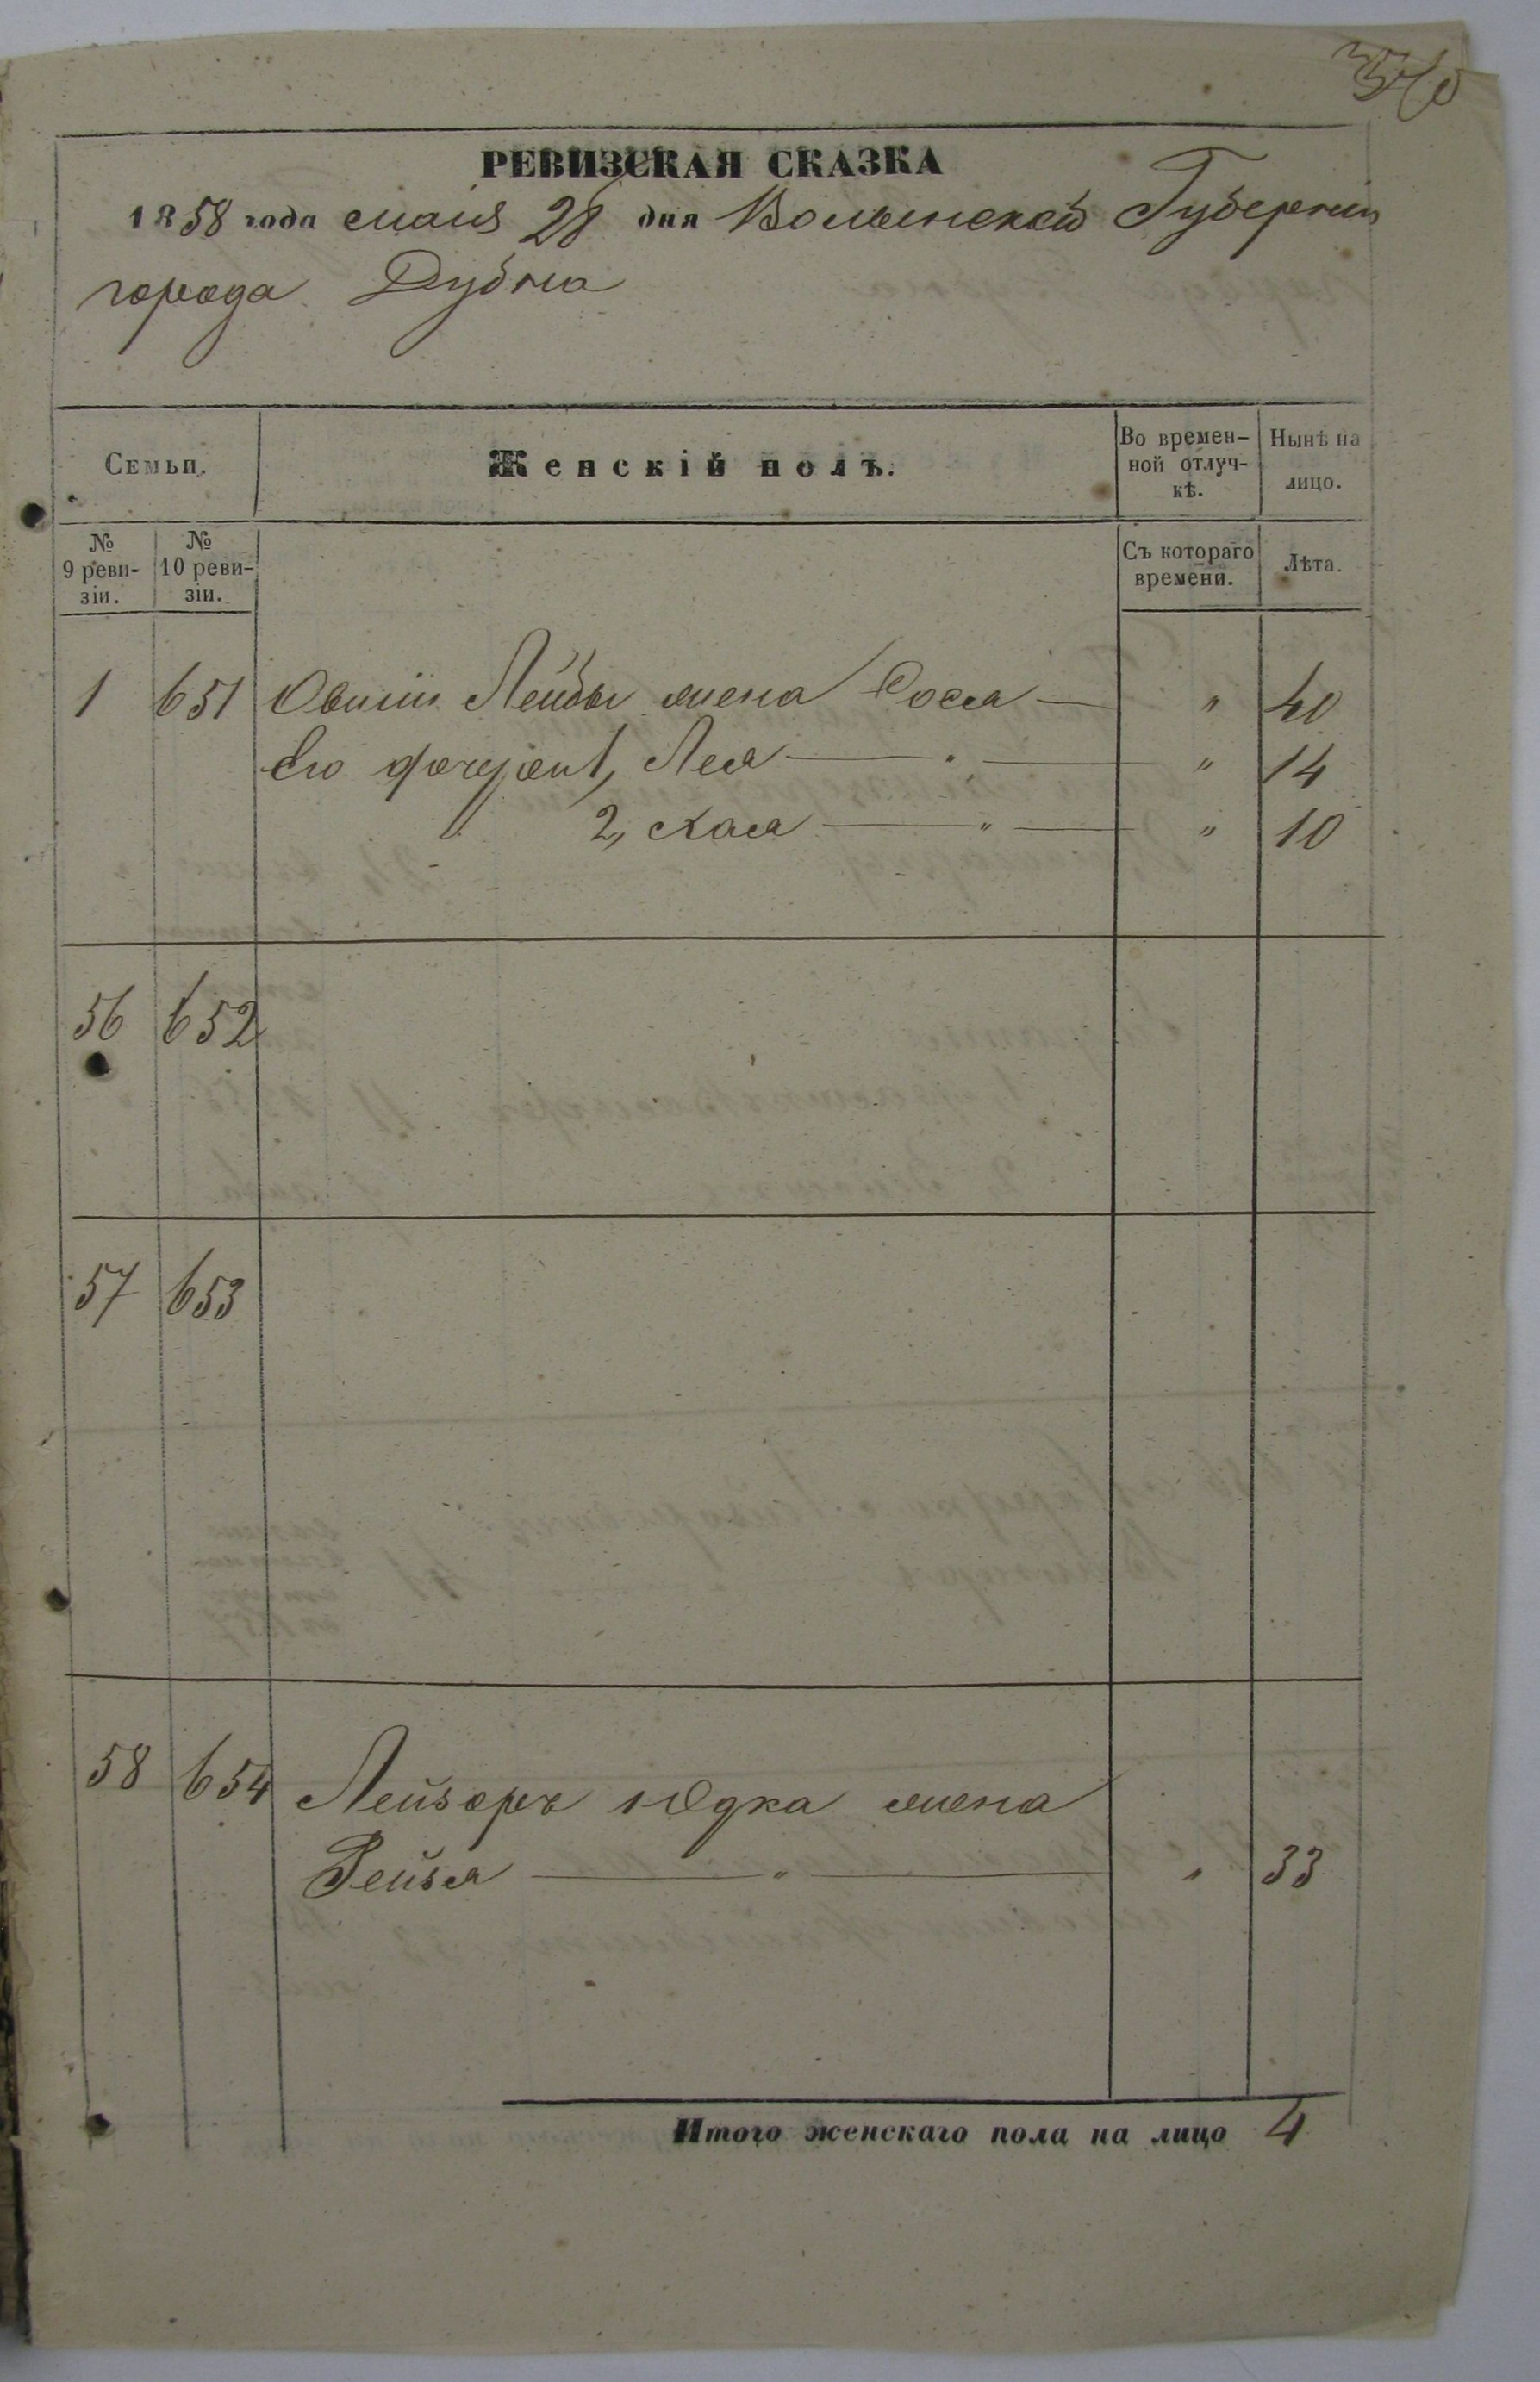 РЕВИЗСКАЯ СКАЗКА
1858 года маія 28 дня Волынской Губерніи
города Дубна
Семьи.
Женскій полъ.
Во времен-
ной отлуч-
кѣ.
Нынѣ на
лицо.
№
9 реви-
зіи.
№
10 реви-
зіи.
Съ котораго
времени.
Лѣта.
1 651 Лейбы жена Сося — " 40
Его дочери 1, Лея — " — " 14
2, Хая — " — " 10
56 652
57 653
58 654 Лейзоръ Юдка жена
Рейзя — " — " 33
Итого женскаго пола на лицо 4